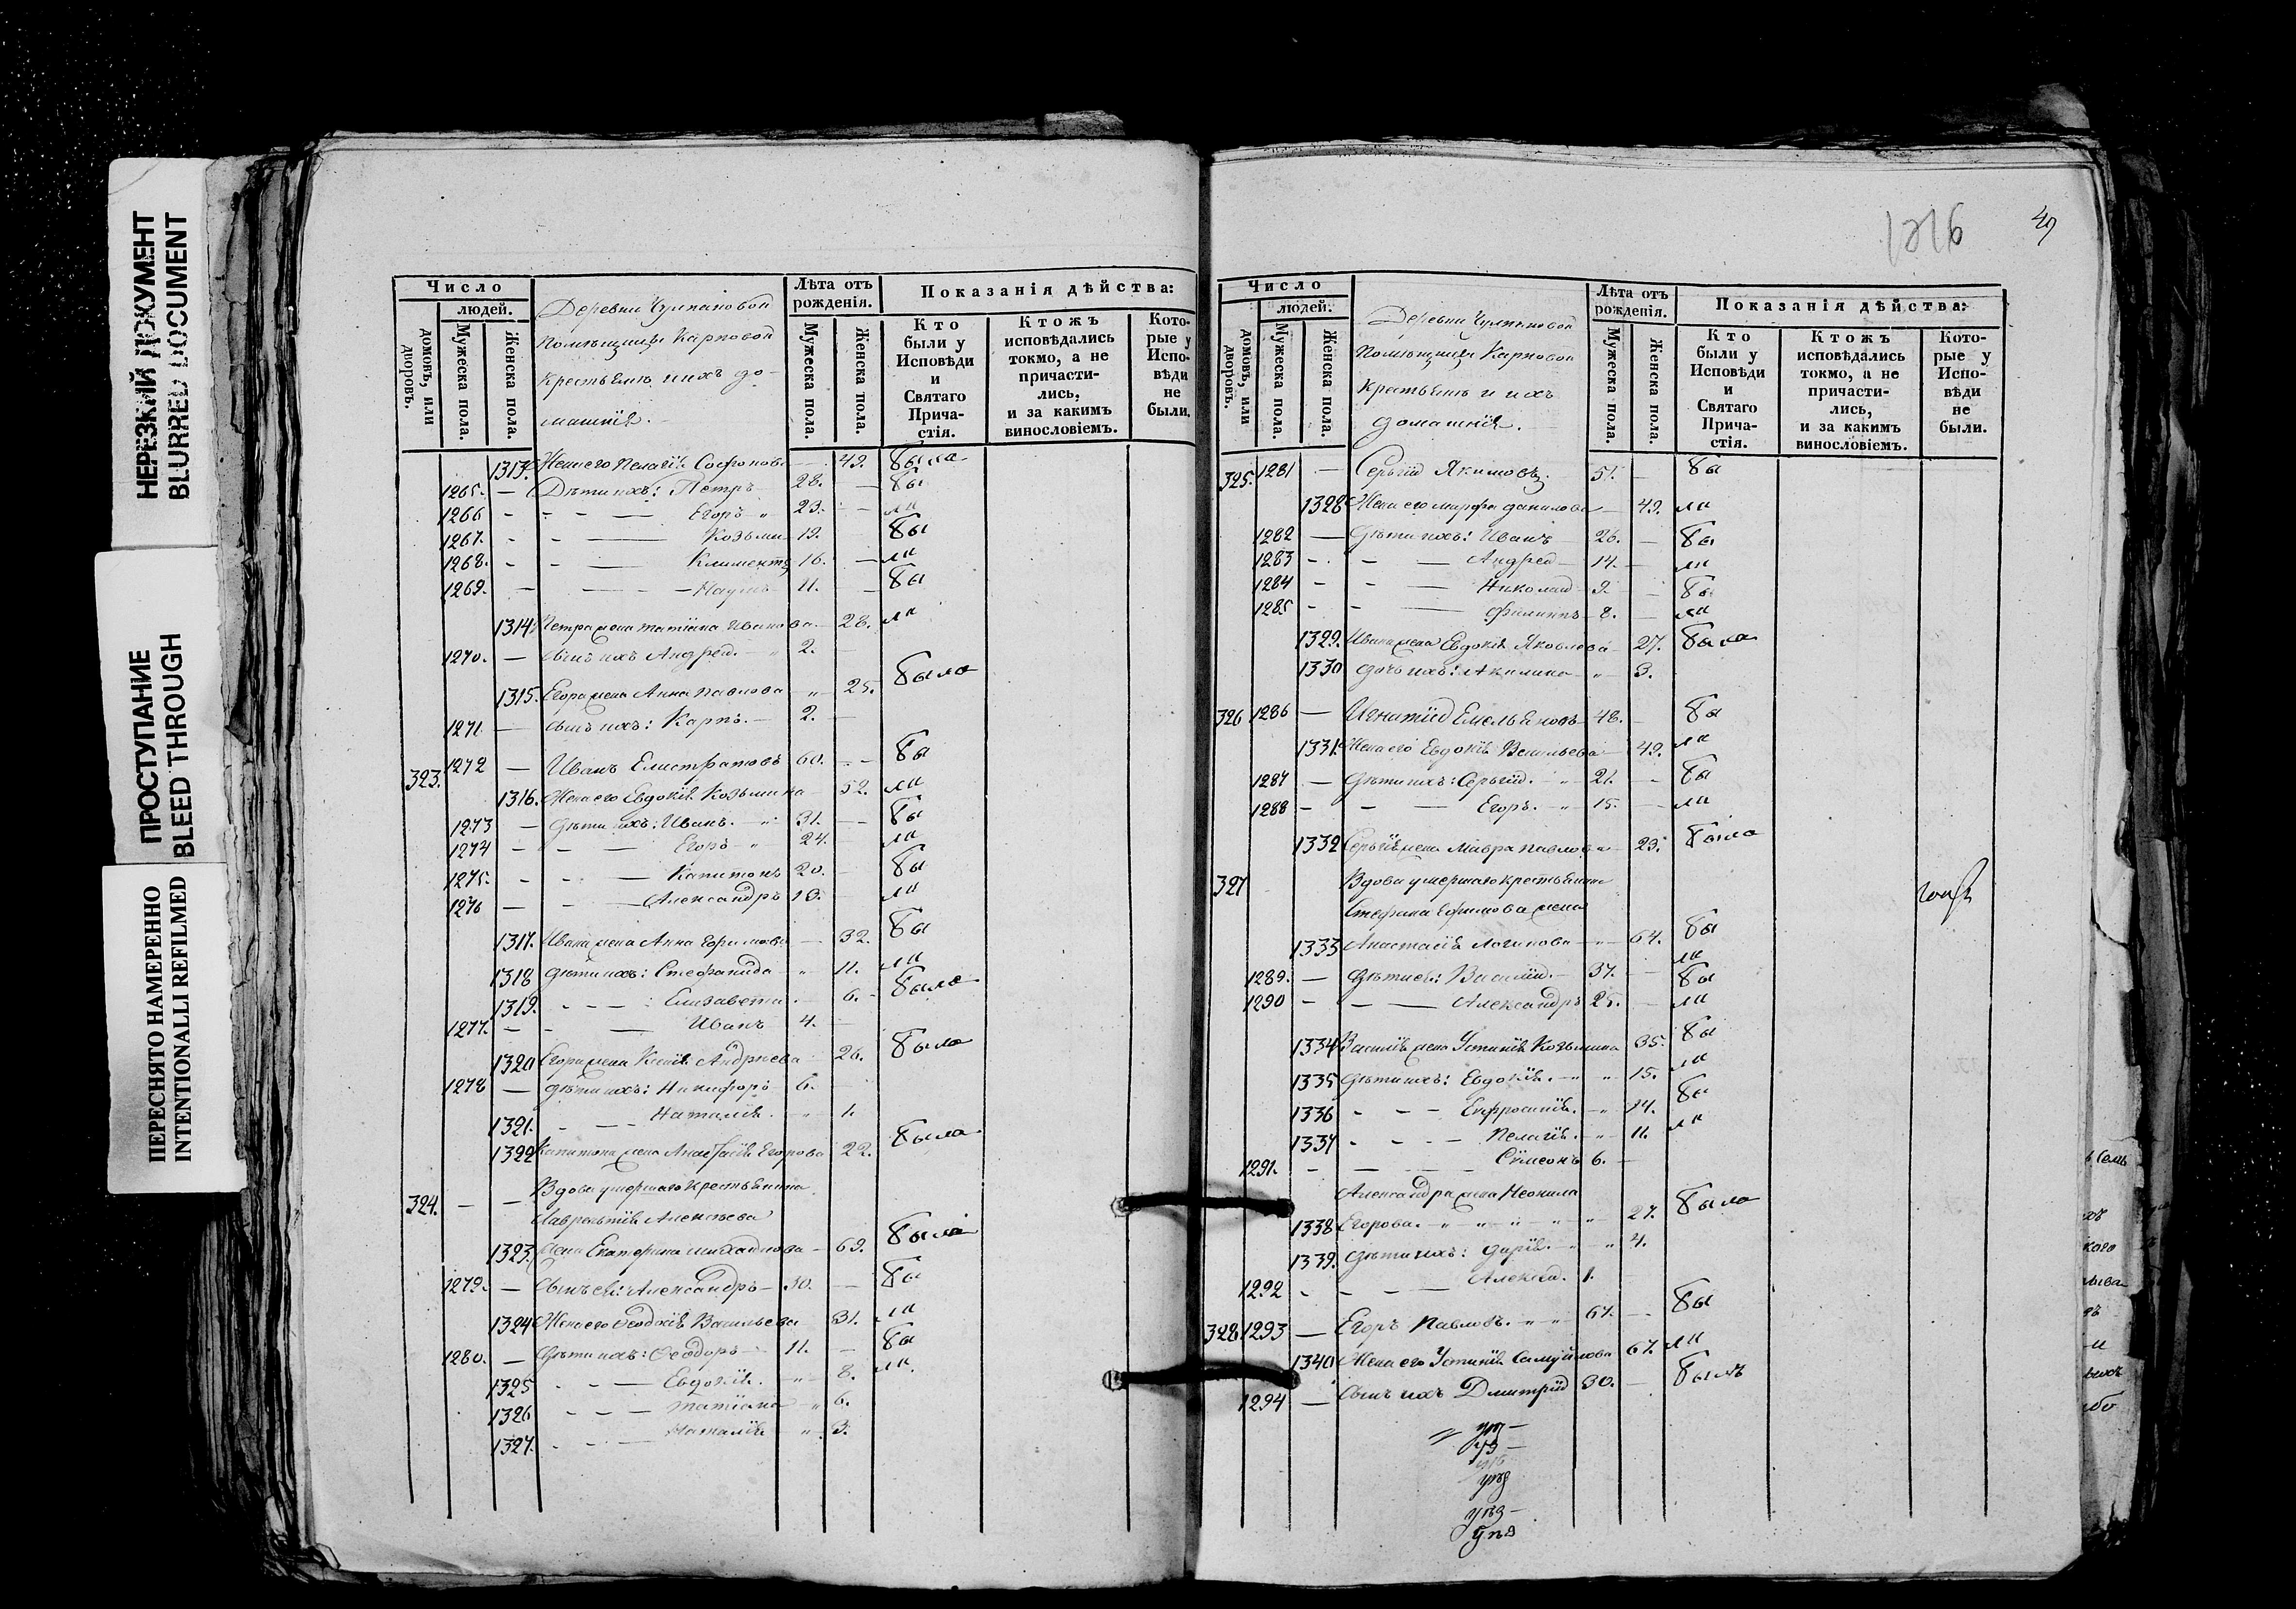 НЕРЕЗКИЙ ДОКУМЕНТ
BLURRED DOCUMENT
ПРОСТУПАНИЕ
BLEED THROUGH
ПЕРЕСНЯТО НАМЕРЕННО
INTENTIONALLI REFILMED
Число
людей.
домовъ, или дворовъ.
Мужеска пола.
Женска пола.
Деревни Чулпановой
Помѣщицы Карповой
Крестьяне и ихъ до-
машнія.
Лѣта отъ рожденія.
Мужеска пола.
Женска пола.
Показанія дѣйства:
Кто были у Исповѣди и Святаго Прича-стія.
Ктожъ исповѣдались токмо, а не причасти-лись, и за какимъ винословіемъ.
Кото-рые у Испо-вѣди не были.
1313. Жена его Пелагія Софонова — 49. была
1265. — Дѣти ихъ: Петръ 28. — бы
1266 — Егоръ 23. — ли
1267. — Козьма 19. бы
1268. — Климентъ 16. — ли
1269. — Наумъ 11. — бы
1314. Петра жена Татіана Иванова — 28. ли
1270. — Сынъ ихъ Андрей. 2.
1315. Егора жена Анна Павлова — 25. была
1271 — Сынъ ихъ: Карпъ. — 2. —
323. 1272 — Иванъ Елистратовъ 60. — бы
1316. Жена его Евдокія Козьмина — 52. ли
1273 — Дѣти ихъ: Иванъ. 31. — бы
1274 — Егоръ 24. ли
1275. — Капитонъ 20. — бы
1276 — Александръ 13. ли
1317. Ивана жена Анна Ефимова — 32. бы
1318 Дѣти ихъ: Стефанида 11. ли
1319. Елизавета. 6. была
1277. — Иванъ 4. —
1320 Егора жена Ксенія Андреева 26. была
1278 — Дѣти ихъ: Никифоръ 6.
1321. Наталія. 1.
1322 Капитона жена Анастасія Егорова 22. была
324. — — Вдова умершаго крестьянина
Лаврентія Алексѣева
1323. жена Екатерина Михайлова — 69. была
1279. — Сынъ ея: Александръ — 30. — бы
1324 Жена его Ѳеодосія Васильева 31. ли
1280. — Дѣти ихъ: Ѳеодоръ 11. — бы
1325 Евдокія. 8. ли
1326 Татіана 6.
1327. Наталія 3.
1216
49
Число
людей.
домовъ, или дворовъ.
Мужеска пола.
Женска пола.
Деревни Чулпановой
Помѣщицы Карповой
Крестьяне и ихъ
домашнія.
Лѣта отъ рожденія.
Мужеска пола.
Женска пола.
Показанія дѣйства:
Кто были у Исповѣди и Святаго Прича-стія.
Ктожъ исповѣдались токмо, а не причасти-лись, и за какимъ винословіемъ.
Кото-рые у Испо-вѣди не были.
325. 1281 — Сергій Якимовъ. 51. — бы
1328 Жена его Марфа Данилова — 49. ли
1282 — Дѣти ихъ: Иванъ 26. — бы
1283 — Андрей 14. — ли
1284 — Николай 9. — бы
1285 — Филиппъ 8. — ли
1329. Ивана жена Евдокія Яковлева — 27. была
1330 Дочь ихъ: Акилина 3.
326 1286 — Игнатій Емельяновъ 48. — бы
1331. Жена его Евдокія Васильева — 49. ли
1287 — Дѣти ихъ: Сергій. 21. — бы
1288 — Егоръ. 15. — ли
1332 Сергія жена Мавра Павлова — 23. была
327 Вдова умершаго крестьянина
Стефана Ефимова жена
1333 Анастасія Логинова — 64. бы
1289. — Дѣти ея: Василій. — 37. — ли бы
1290 — Александръ 25. — ли
1334 Василія жена Устинія Козьмина 35. бы
1335 Дѣти ихъ: Евдокія. 15. ли
1336 Евфросинія. 14. бы
1337 Пелагія. 11. ли
1291. — Сѵмеонъ 6. —
Александра жена Неонила
1338 Егорова. 27. была
1339. Дѣти ихъ: Дарія. 4.
1292 — Алексѣй. 1.
328 1293 — Егоръ Павловъ. 67. — бы
1340 Жена его Устинія Самуйлова 67. ли
1294 — Сынъ ихъ Дмитрій 30. — былъ